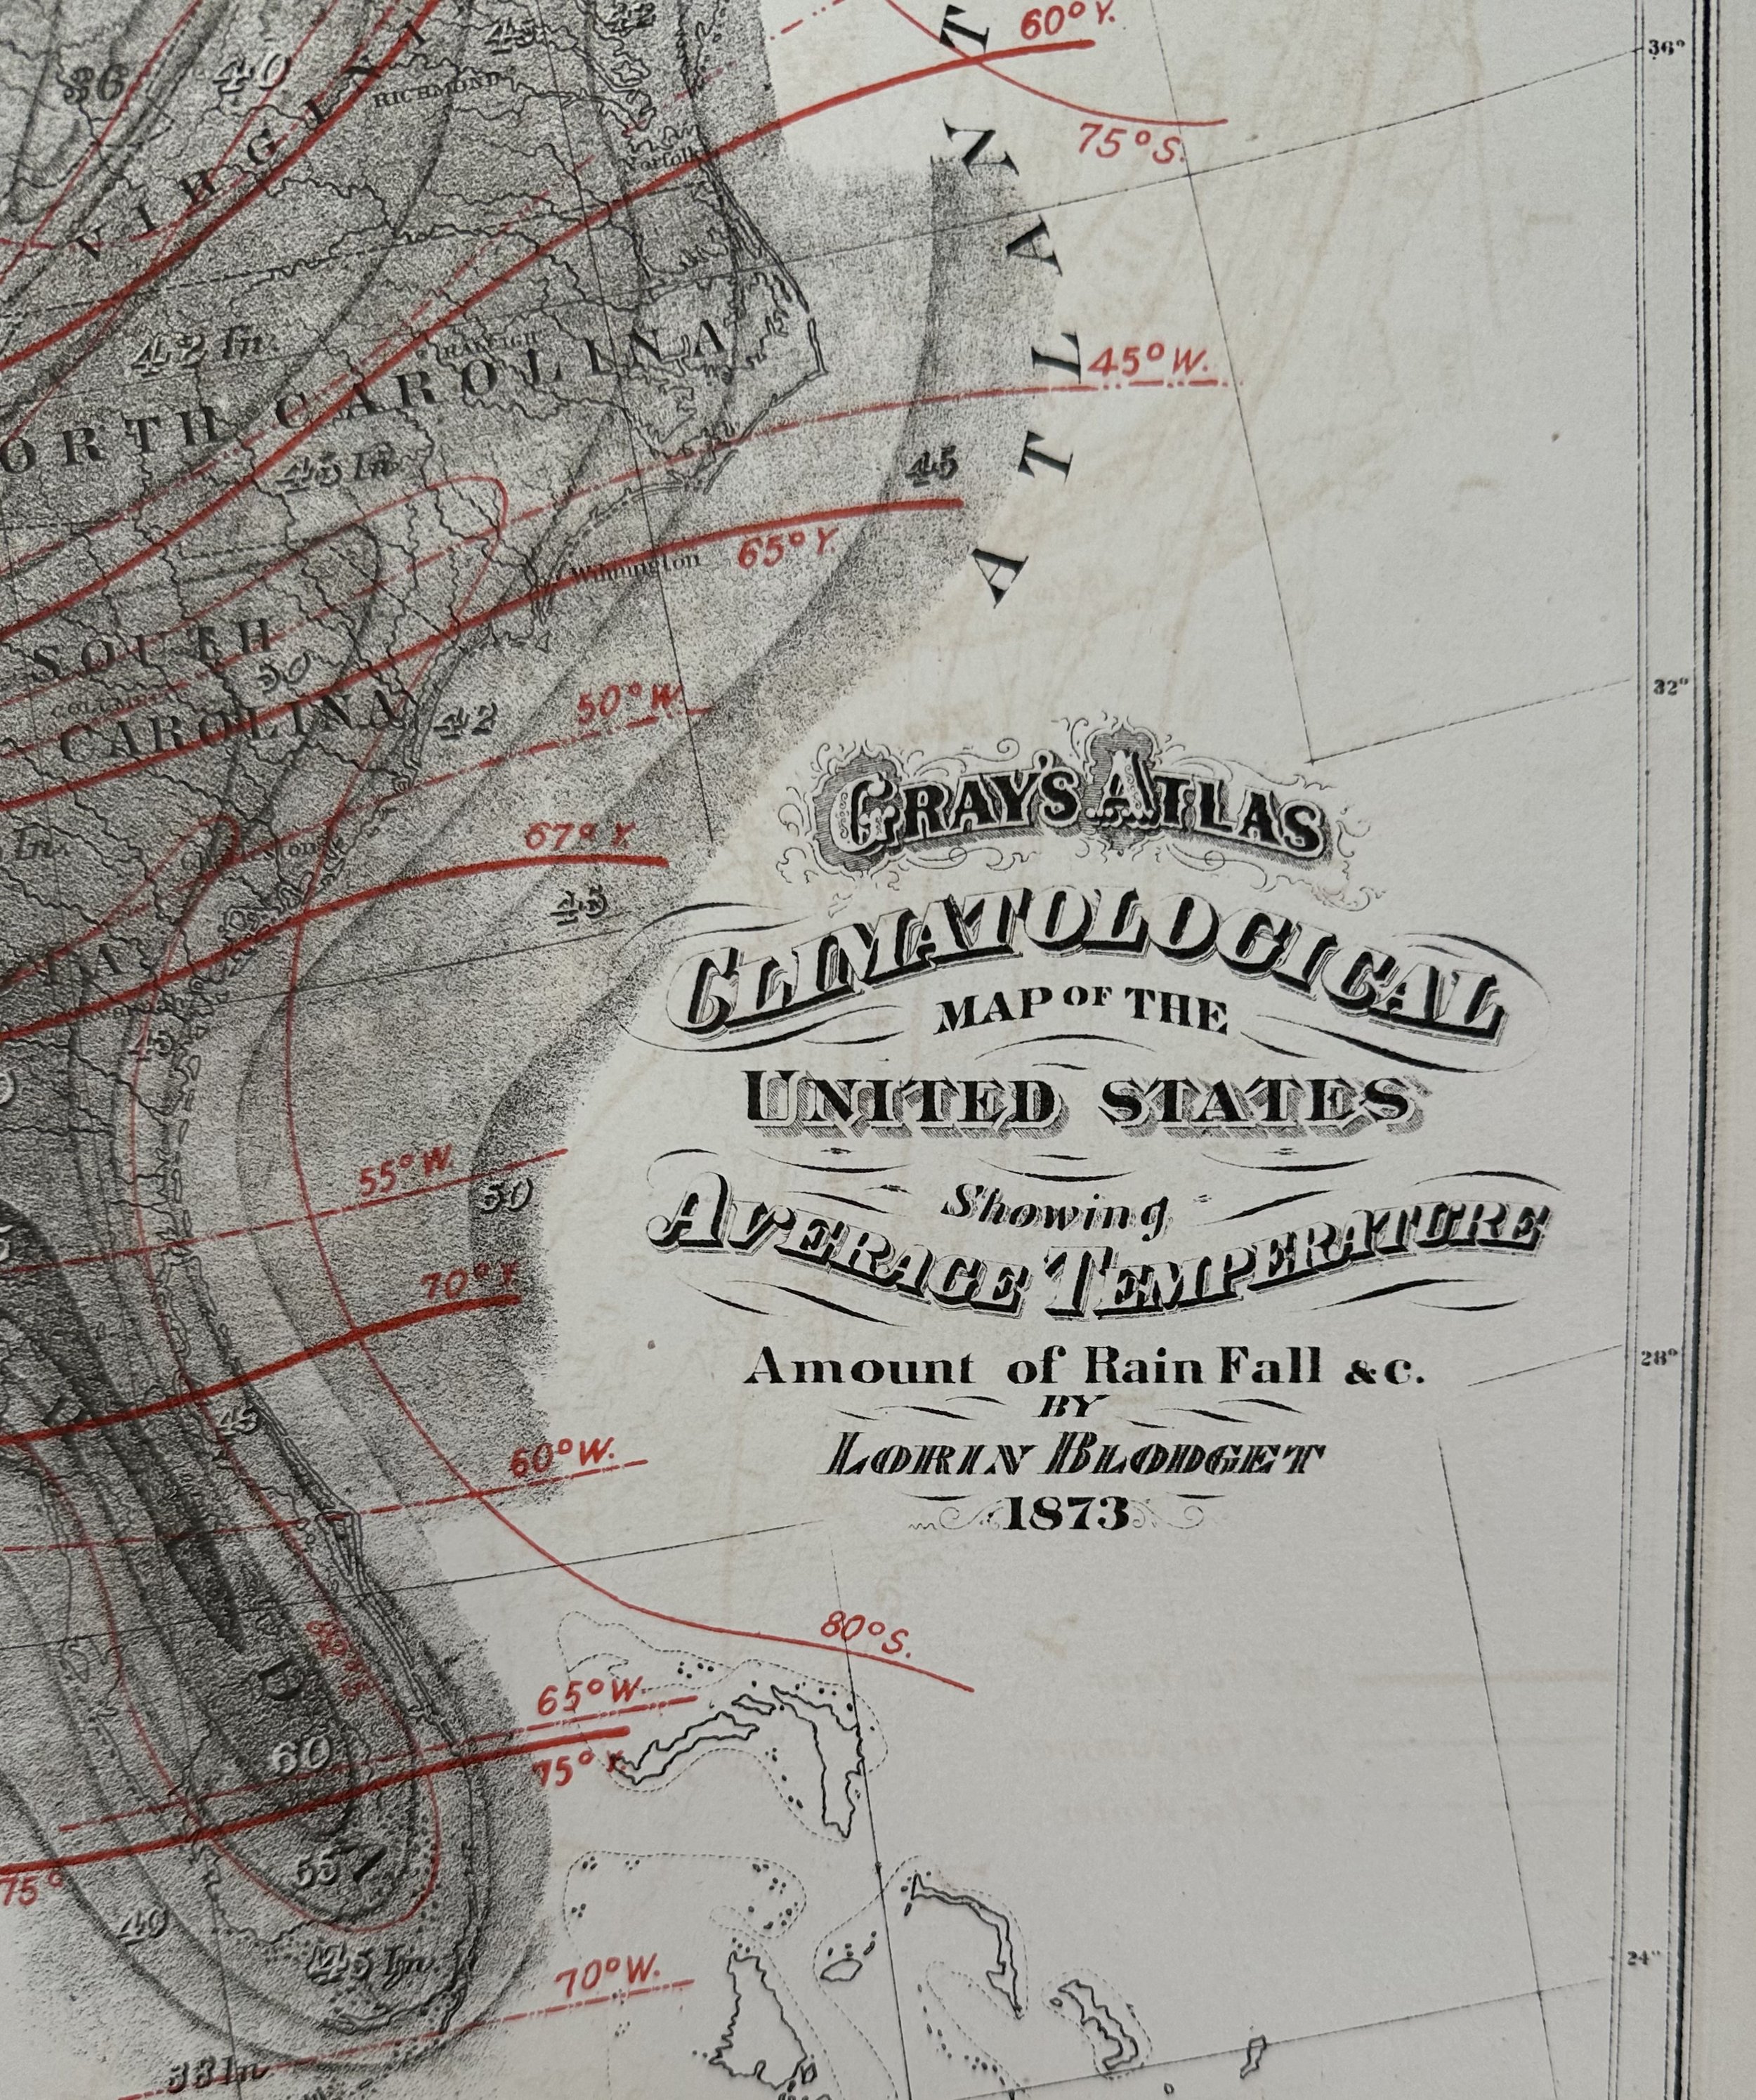 60° Y.
36°
36
40
45
42
RICHMOND
75° S.
VIRGINIA
Norfolk
ATLANT
42 In.
RALEIGH
45° W.
ORTH CAROLINA
45 In.
45
65° Y.
Wilmington
SOUTH
50
COLUMBIA
CAROLINA
42
50° W.
32°
GRAY'S ATLAS
In.
Charleston
67° Y.
45
CLIMATOLOGICAL
MAP OF THE
45
UNITED STATES
55° W.
50
Showing
AVERAGE TEMPERATURE
70° Y.
Amount of Rain Fall &c.
28°
BY
45
LORIN BLODGET
60° W.
1873
80° S.
80° S.
D
65° W.
60
75° Y.
55
75°
40
45 In.
24°
70° W.
38 In.